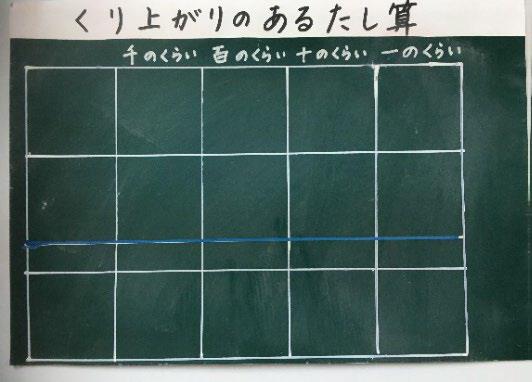 くり上がりのあるたし算
千のくらい 百のくらい 十のくらい 一のくらい